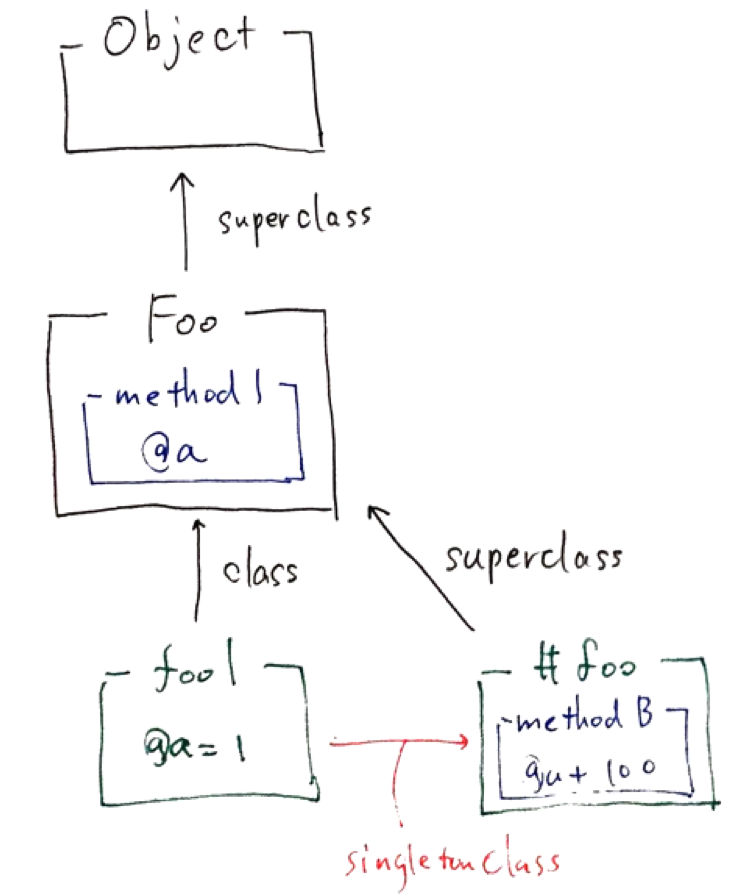 Object
superclass
Foo
method 1
@a
class
superclass
foo1
@a = 1
# foo
method B
@a + 100
singleton class